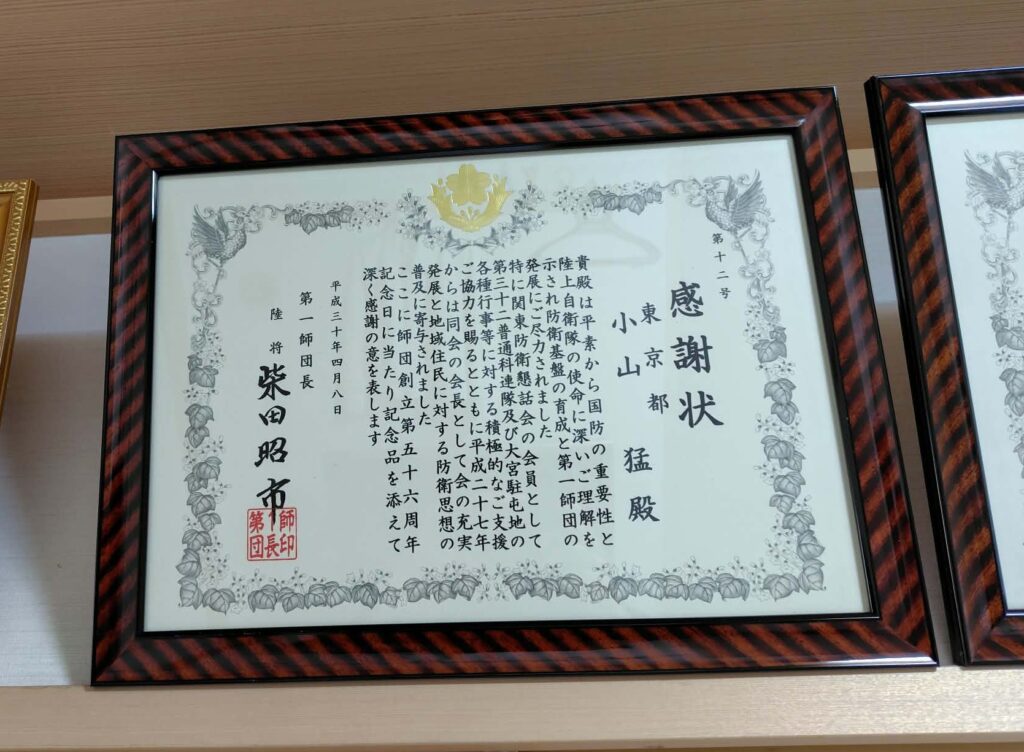 第十二号
感謝状
東京都
小山猛殿
貴殿は平素から国防の重要性と
陸上自衛隊の使命に深いご理解を
示され防衛基盤の育成と第一師団の
発展にご尽力されました
特に関東防衛懇話会の会員として
第三十二普通科連隊及び大宮駐屯地の
各種行事等に対する積極的なご支援
ご協力を賜るとともに平成二十七年
からは同会の会長として会の充実
発展と地域住民に対する防衛思想の
普及に寄与されました
ここに師団創立第五十六周年
記念日に当たり記念品を添えて
深く感謝の意を表します
平成三十年四月八日
第一師団長
陸将 柴田昭市
第一師団長印